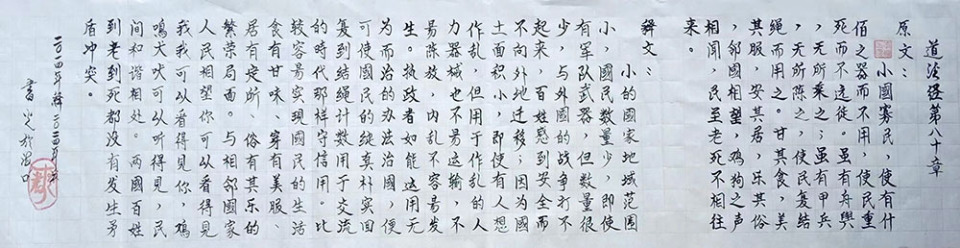 道德经第八十章
原文：
小國寡民，使有什
佰之器而不用，使民重
死而不远徙。虽有舟輿
，无所乘之；虽有甲兵
，无所陈之，使民复结
绳而用之。甘其食，美
其服，安其居，乐其俗
，邻國相望，鸡狗之声
相闻，民至老死不相往
来。
释文：
小的國家地域范围
小，國民数量少，即使
有军队武器，但数量很
少，与外國的战争打不
起来，百姓感到安全而
不向外地迁移；因为國
土面积小，即使有人想
作乱，但用于作乱的人
力器械也不易运输，不
易陈放，内乱不容易发
生。执政者如能运用无
为而治的办法治國，便
可使國民的纯真朴实回
复到结绳计数用于交流
的時代那样守信用。比
较容易实现國民的生活
食有甘味、穿有美服、
居有定所、俗有其乐的
繁荣局面。与相邻國家的
人民相望你可以看得见
我我可以看得见你，鸡
鸣犬吠可以听得见，民
间和谐相处。两國百姓
到老到死都没有发生矛
盾冲突。
二〇一四年释 二〇二四年
书